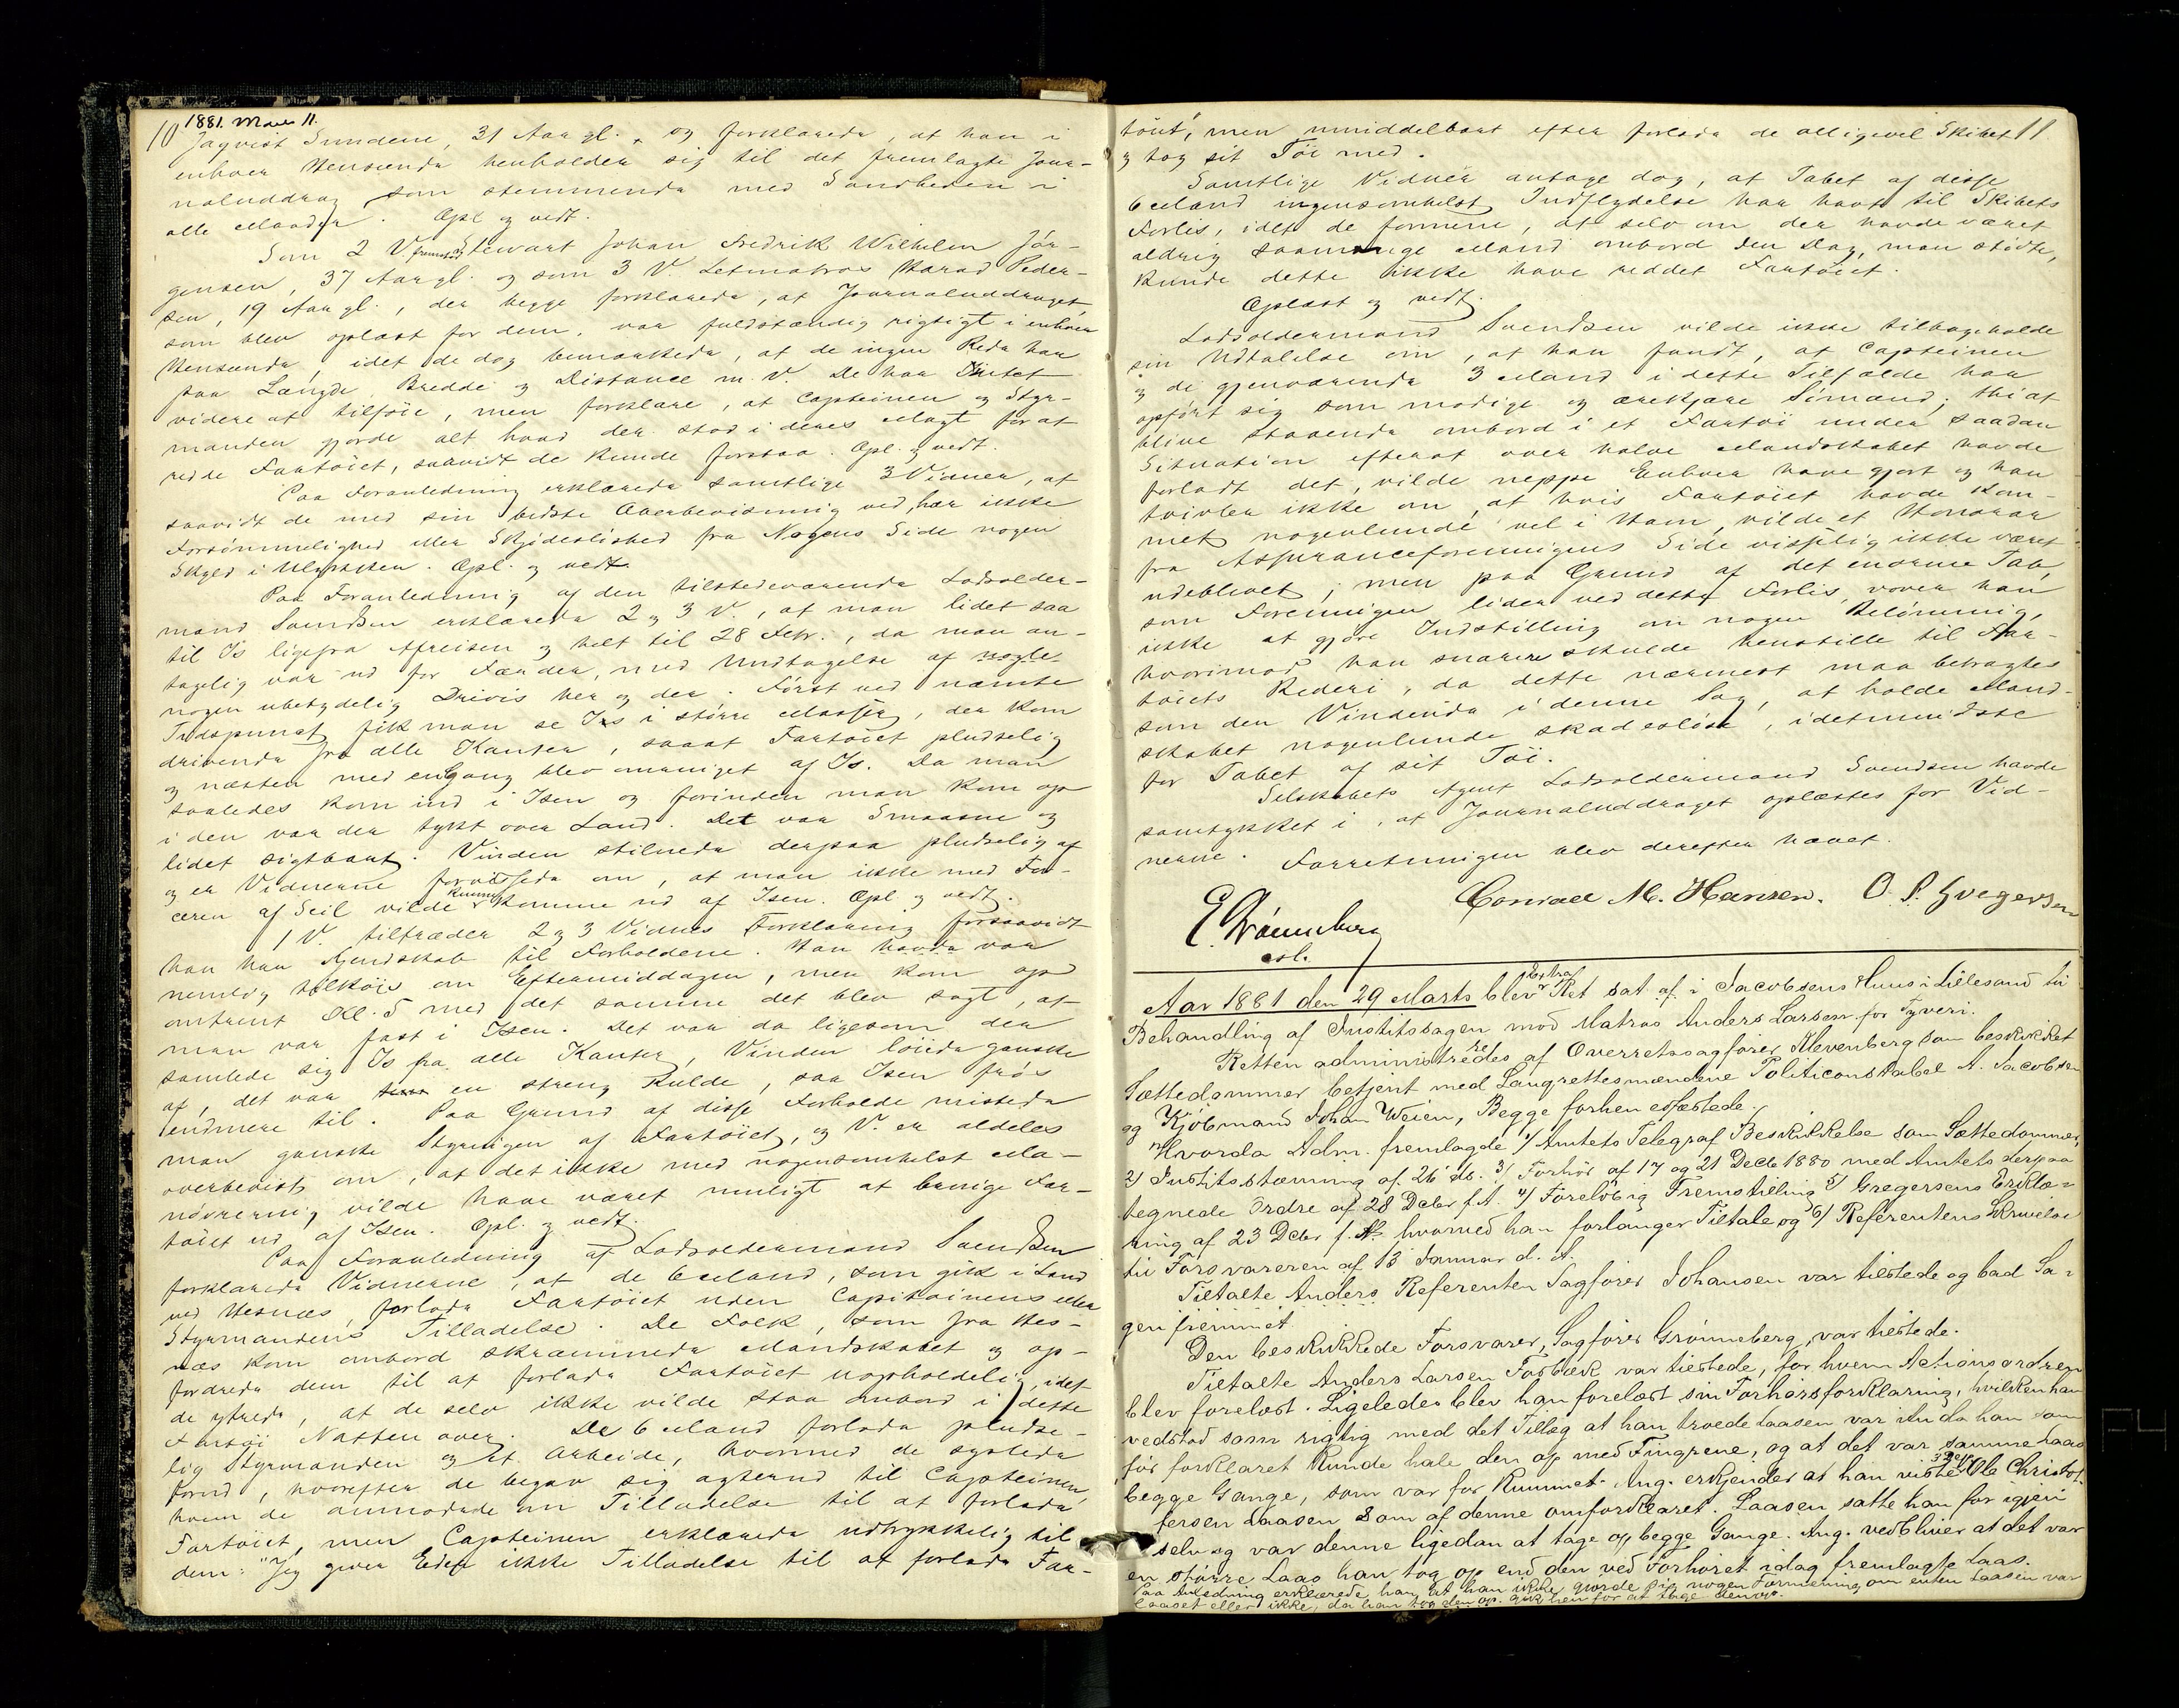 10 1881. Marts 11.
Jaqvist Sundene, 31 Aar gl., og forklarede, at han i
enhver Henseende henholder sig til det fremlagte Jour-
naluddrag som stemmende med Sandheden i
alle Maader. Opl. og vedt.
Som 2 V. fremstod Stewart Johan Fredrik Wilhelm Jör-
gensen, 37 Aar gl. og som 3 V. Letmatros Harad Peder-
sen, 19 Aar gl., der begge forklarede, at Journaluddraget,
som blev oplæst for dem, var fuldstændig rigtigt i enhver
Henseende, idet de dog bemærkede, at de ingen Rede har
paa Længde, Bredde og Distance m. V. De har Intet
videre at tilföie, men forklare, at Capteinen og Styr-
manden gjorde alt hvad der stod i deres Magt for at
redde Fartöiet, saavidt de kunde forstaa. Opl. og vedt.
Paa Foranledning erklærede samtlige 3 Vidner, at
saavidt de med sin bedste Overbevisning ved, har ikke
Forsömmelighed eller Skjödeslöshed fra Nogens Side nogen
Skyld i Ulykken. Opl. og vedt.
Paa Foranledning af den tilstedeværende Lodsolder-
mand Svendsen erklærede 2 og 3 V., at man lidet saa
til Is ligefra Afreisen og helt til 28 Febr., da man an-
tagelig var ud for Færder, med Undtagelse af nogle
nogen ubetydelig Drivis her og der. Först ved nævnte
Tidspunct fik man se Is i större Masser, der kom
drivende fra alle Kanter, saaat Fartöiet pludselig
og næsten med engang blev omringet af Is. Da man
saaledes kom ind i Isen og forinden man kom op
i den var der tykt over Land. Det var Smaasne og
lidet sigtbart. Vinden stilnede derpaa pludselig af
og er Vidnerne forvissede om, at man ikke med For-
ceren af Seil vilde kunne komme ud af Isen. Opl. og vedt.
1 V. tiltræder 2 og 3 Vidnes Forklaring forsaavidt
han har Kjendskab til Forholdene. Han havde var
nemlig tilköis om Eftermiddagen, men kom op
omtrent Kl. 5 med det samme det blev sagt, at
man var fast i Isen. Det var da ligesom der
samlede sig Is fra alle Kanter, Vinden löiede ganske
af, det var en streng Kulde, saa Isen frös
endmere til. Paa Grund af disse Forholde mistede
man ganske Styringen af Fartöiet, og V. er aldeles
overbevist om, at det ikke med nogensomhelst Ma-
növrering vilde have været muligt at bringe Far-
töiet ud af Isen. Opl. og vedt.
Paa Foranledning af Lodsoldermand Svendsen
forklarede Vidnerne, at de 6 Mand, som gik i Land
ved Hesnæs, forlode Fartöiet uden Capitainens eller
Styrmandens Tilladelse. De Folk, som fra Hes-
næs kom ombord skræmmede Mandskabet og op-
fordrede dem til at forlade Fartöiet uopholdelig, idet
de ytrede, at de selv ikke vilde staa ombord i dette
Fartöi Natten over. De 6 Mand forlode pludse-
lig Styrmanden og et Arbeide, hvormed de syslede
forud, hvorefter de begav sig agterud til Capteinen,
hvem de anmodede om Tilladelse til at forlade
Fartöiet, men Capteinen erklærede udtrykkelig til
dem: "Jeg giver Eder ikke Tilladelse til at forlade Far-
töiet", men umiddelbart efter forlode de alligevel Skibet 11
og tog sit Töi med.
Samtlige Vidner antage dog, at Tabet af disse
6 Mand ingensomhelst Indflydelse har havt til Skibets
Forlis, idet de formene, at selv om der havde været
aldrig saamange Mand ombord den Dag, man stödte,
kunde dette ikke have reddet Fartöiet.
Oplæst og vedt.
Lodsoldermand Svendsen vilde ikke tilbageholde
sin Udtalelse om, at han fandt, at Capteinen
og de gjenværende 3 Mand i dette Tilfælde har
opfört sig som modige og ærekjære Sömænd; thi at
blive staaende ombord i et Fartöi under saadan
Situation efterat over halve Mandskabet havde
forladt det, vilde neppe Enhver have gjort og han
tvivler ikke om, at hvis Fartöiet havde kom-
met nogenlunde vel i Havn, vilde et Honorar
fra Assuranceforeningens Side visselig ikke været
udeblevet; men paa Grund af det enorme Tab,
som Foreningen lider ved dette Forlis, vover han
ikke at gjöre Indstilling om nogen Belönning,
hvorimod han snarere skulde henstille til Far-
töiets Rederi, da dette nærmest maa betragtes
som den Vindende i denne Sag, at holde Mand-
skabet nogenlunde skadeslöst, idetmindste
for Tabet af sit Töi.
Selskabets Agent Lodsoldermand Svendsen havde
samtykket i, at Journaluddraget oplæstes for Vid-
nerne. Forretningen blev derefter hævet.
E. Grönneberg Conrad M. Hansen. O. P. Gregersen
cst.
Aar 1881 den 29 Marts blev extra Ret sat af i Jacobsens Huus i Lillesand til
Behandling af Justitssagen mod Matros Anders Larsen for Tyveri.
Retten administreredes af Overretssagförer Klevenberg som beskikket
Sættedommer betjent med Laugrettesmændene Politiconstabel A. Jacobsen
og Kjöbmand Johan Weien, Begge forhen edfæstede.
Hvorda Adm. fremlagde 1/ Amtets Telegraf Beskikkelse som Sættedommer,
2/ Justitsstævning af 26 ds. 3/ Forhör af 17 og 21 Decb 1880 med Amtets derpaa
tegnede Ordre af 28 Decbr f.A. 4/ Foreløbig Fremstilling 5/ Gregersens Erklæ-
ring af 23 Decbr f. A. hvorved han forlanger Tiltale og 6/ Referentens Skrivelse
til Forsvareren af 13 Januar d. A.
Tiltalte Anders Referenten Sagförer Johansen var tilstede og bad Sa-
gen fremmet.
Den beskikkede Forsvarer, Sagförer Grønneberg, var tilstede.
Tiltalte Anders Larsen Fosbæk var tilstede, for hvem Actionsordren
blev forelæst. Ligeledes blev han forelæst sin Forhörsforklaring, hvilken han
vedstod som rigtig med det Tillæg at han troede Laasen var inda han som
för forklaret kunde hale den op med Fingrene, og at det var samme Laas
begge Gange, som var for Rummet. Ang. erkjender at han viste Ole Christof-
fersen Laasen som af denne omforklaret. Laasen satte han for igjen
selv og var denne ligedan at tage op begge Gange. Ang. vedbliver at det var
en större Laas han tog op end den ved Forhöret idag fremlagte Laas.
Paa Anledning erklærede han, at han ikke gjorde sig nogen Formening om enten Laasen var
laaset eller ikke, da han tog den op. gik hen for at tage den op.